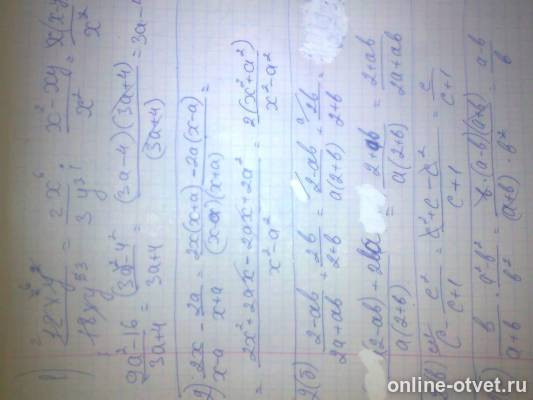 1) 12x⁶y² / 18xy⁵ = 2x⁶ / 3y³; x² - xy / x² = x(x-y) / x²
9a² - 16 / 3a+4 = (3a-4)(3a+4) / (3a+4) = 3a-4
2) 2x / x-a - 2a / x+a = 2x(x+a) - 2a(x-a) / (x-a)(x+a) =
= 2x² + 2ax - 2ax + 2a² / x² - a² = 2(x² + a²) / x² - a²
2(б) 2-ab / 2a+ab + 2b / 2+b = 2-ab / a(2+b) + 2b / 2+b =
(2-ab) + 2ba / a(2+b) = 2+ab / a(2+b) = 2+ab / 2a+ab
(в) c - c² / c+1 = c² + c - c² / c+1 = c / c+1
b / a+b · a² - b² / b² = b · (a-b)(a+b) / (a+b) · b² = a-b / b
online-otvet.ru